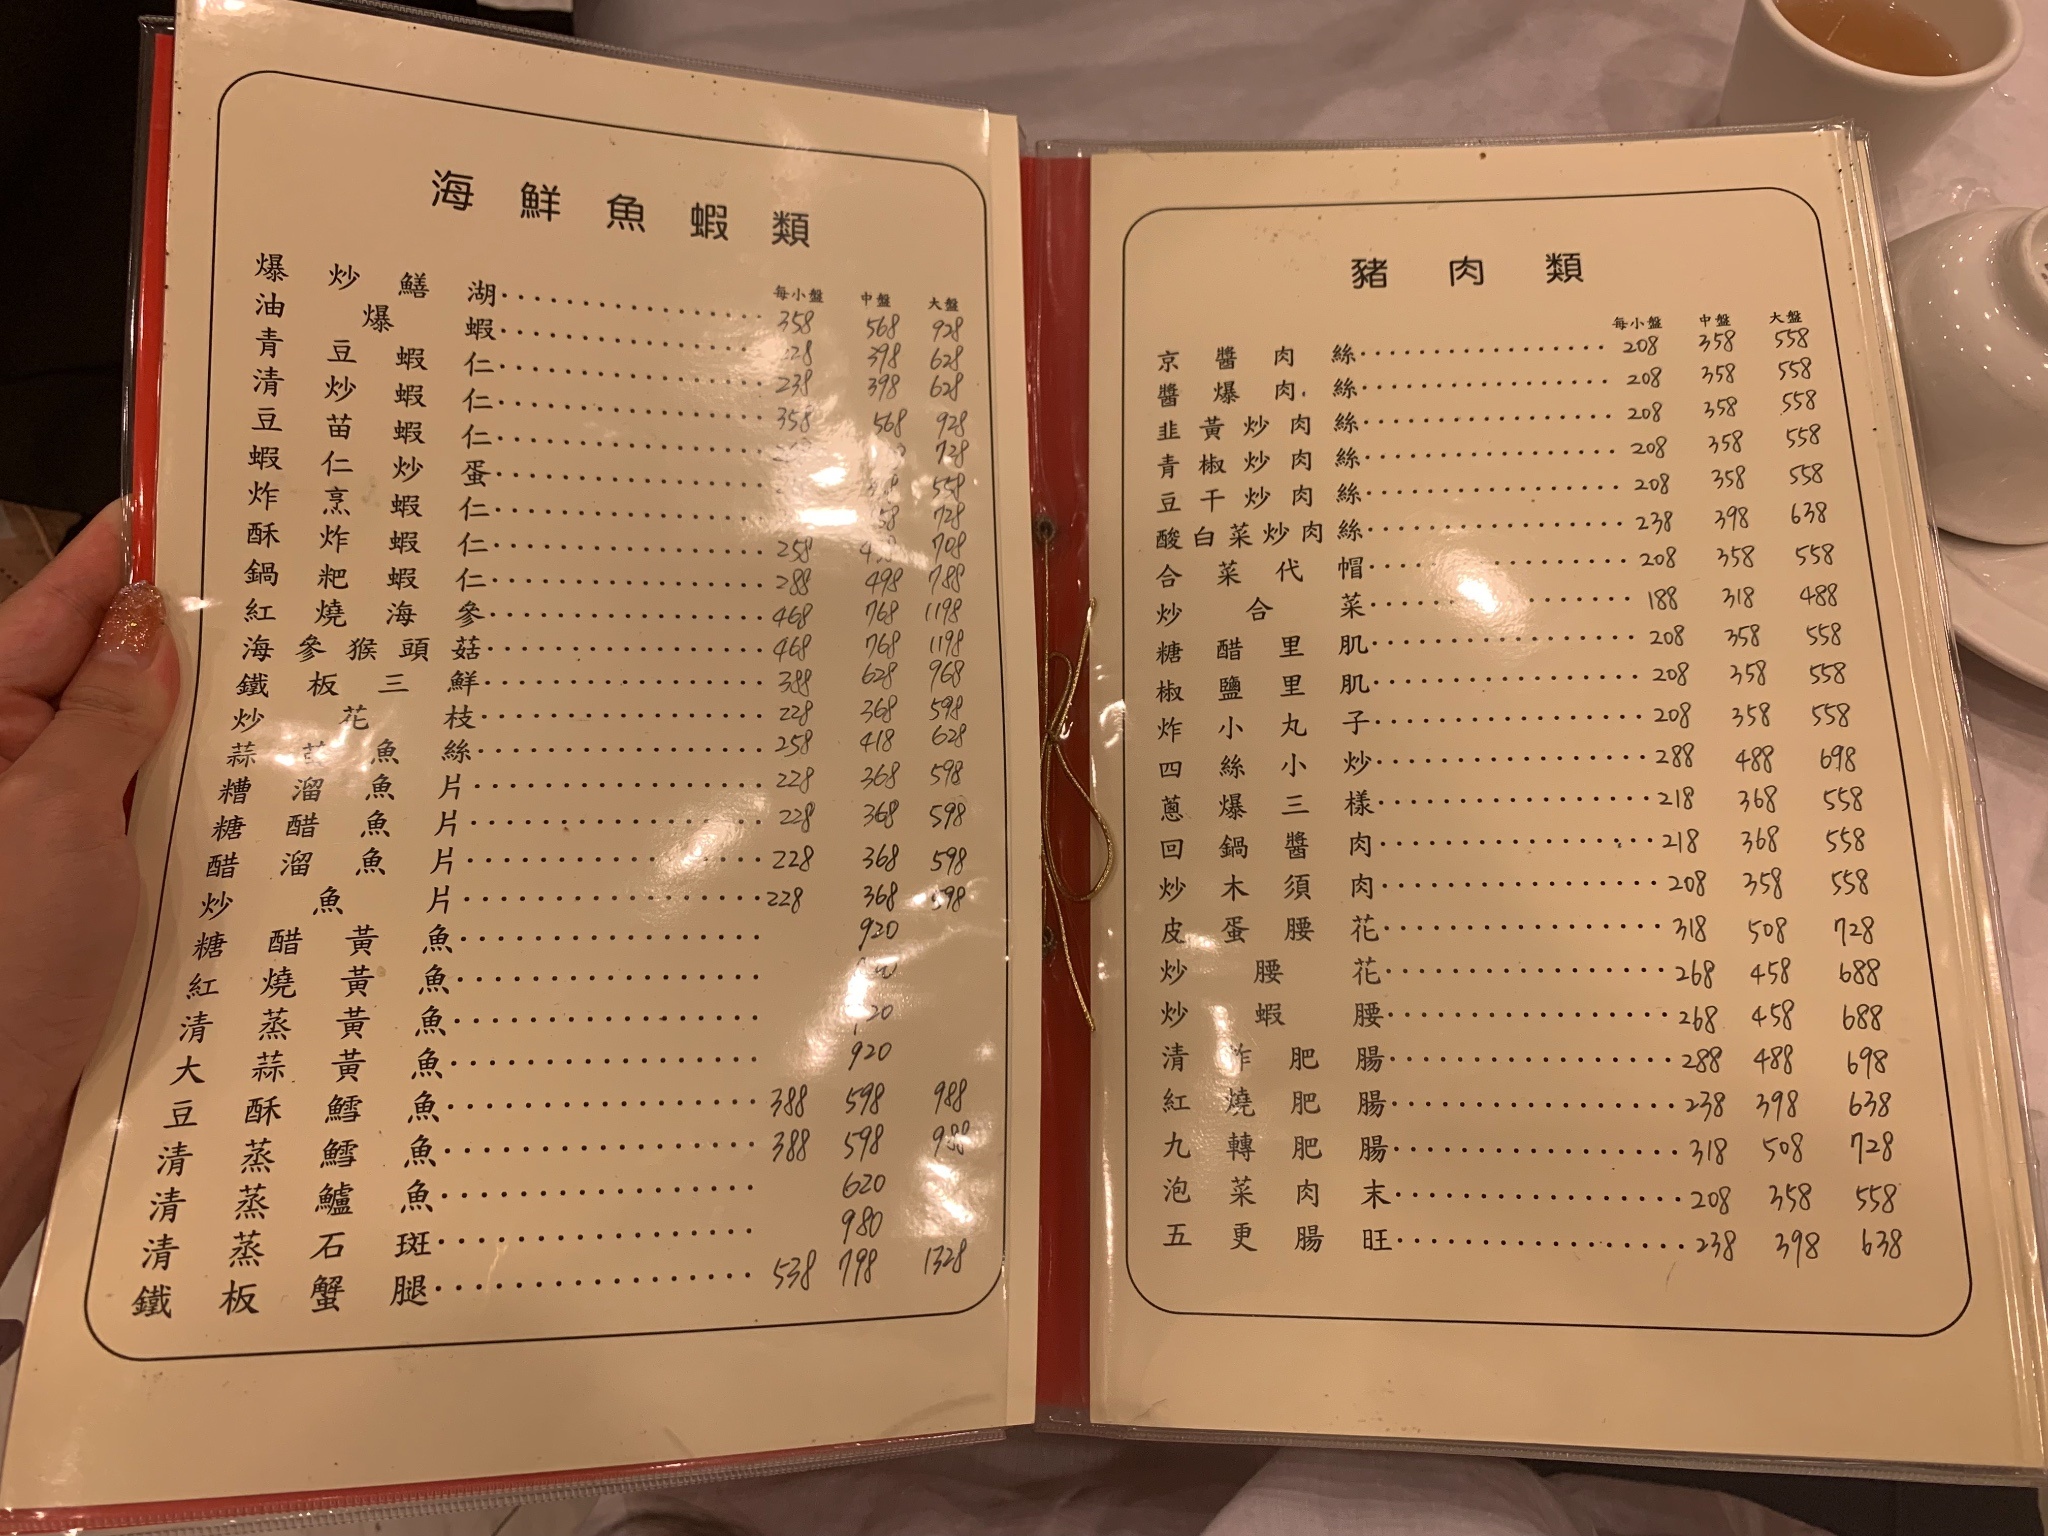 海鮮魚蝦類
每小盤 中盤 大盤
爆炒鱔湖 358 568 928
油爆蝦 398 628
青豆蝦仁 238 398 628
清炒蝦仁 358 568 928
豆苗蝦仁 728
蝦仁炒蛋 558
炸烹蝦仁 728
酥炸蝦仁 258 708
鍋粑蝦仁 288 498 788
紅燒海參 468 768 1198
海參猴頭菇 468 768 1198
鐵板三鮮 388 628 968
炒花枝 228 368 598
蒜魚絲 258 418 628
糟溜魚片 228 368 598
糖醋魚片 228 368 598
醋溜魚片 228 368 598
炒魚片 228 368 598
糖醋黃魚 920
紅燒黃魚
清蒸黃魚 920
大蒜黃魚 920
豆酥鱈魚 388 598 988
清蒸鱈魚 388 598 988
清蒸鱸魚 620
清蒸石斑 980
鐵板蟹腿 538 798 1328
豬肉類
每小盤 中盤 大盤
京醬肉絲 208 358 558
醬爆肉絲 208 358 558
韭黃炒肉絲 208 358 558
青椒炒肉絲 208 358 558
豆干炒肉絲 208 358 558
酸白菜炒肉絲 238 398 638
合菜代帽 208 358 558
炒合菜 188 318 488
糖醋里肌 208 358 558
椒鹽里肌 208 358 558
炸小丸子 208 358 558
四絲小炒 288 488 698
蔥爆三樣 218 368 558
回鍋醬肉 218 368 558
炒木須肉 208 358 558
皮蛋腰花 318 508 728
炒腰花 268 458 688
炒蝦腰 268 458 688
清炸肥腸 288 488 698
紅燒肥腸 238 398 638
九轉肥腸 318 508 728
泡菜肉末 208 358 558
五更腸旺 238 398 638